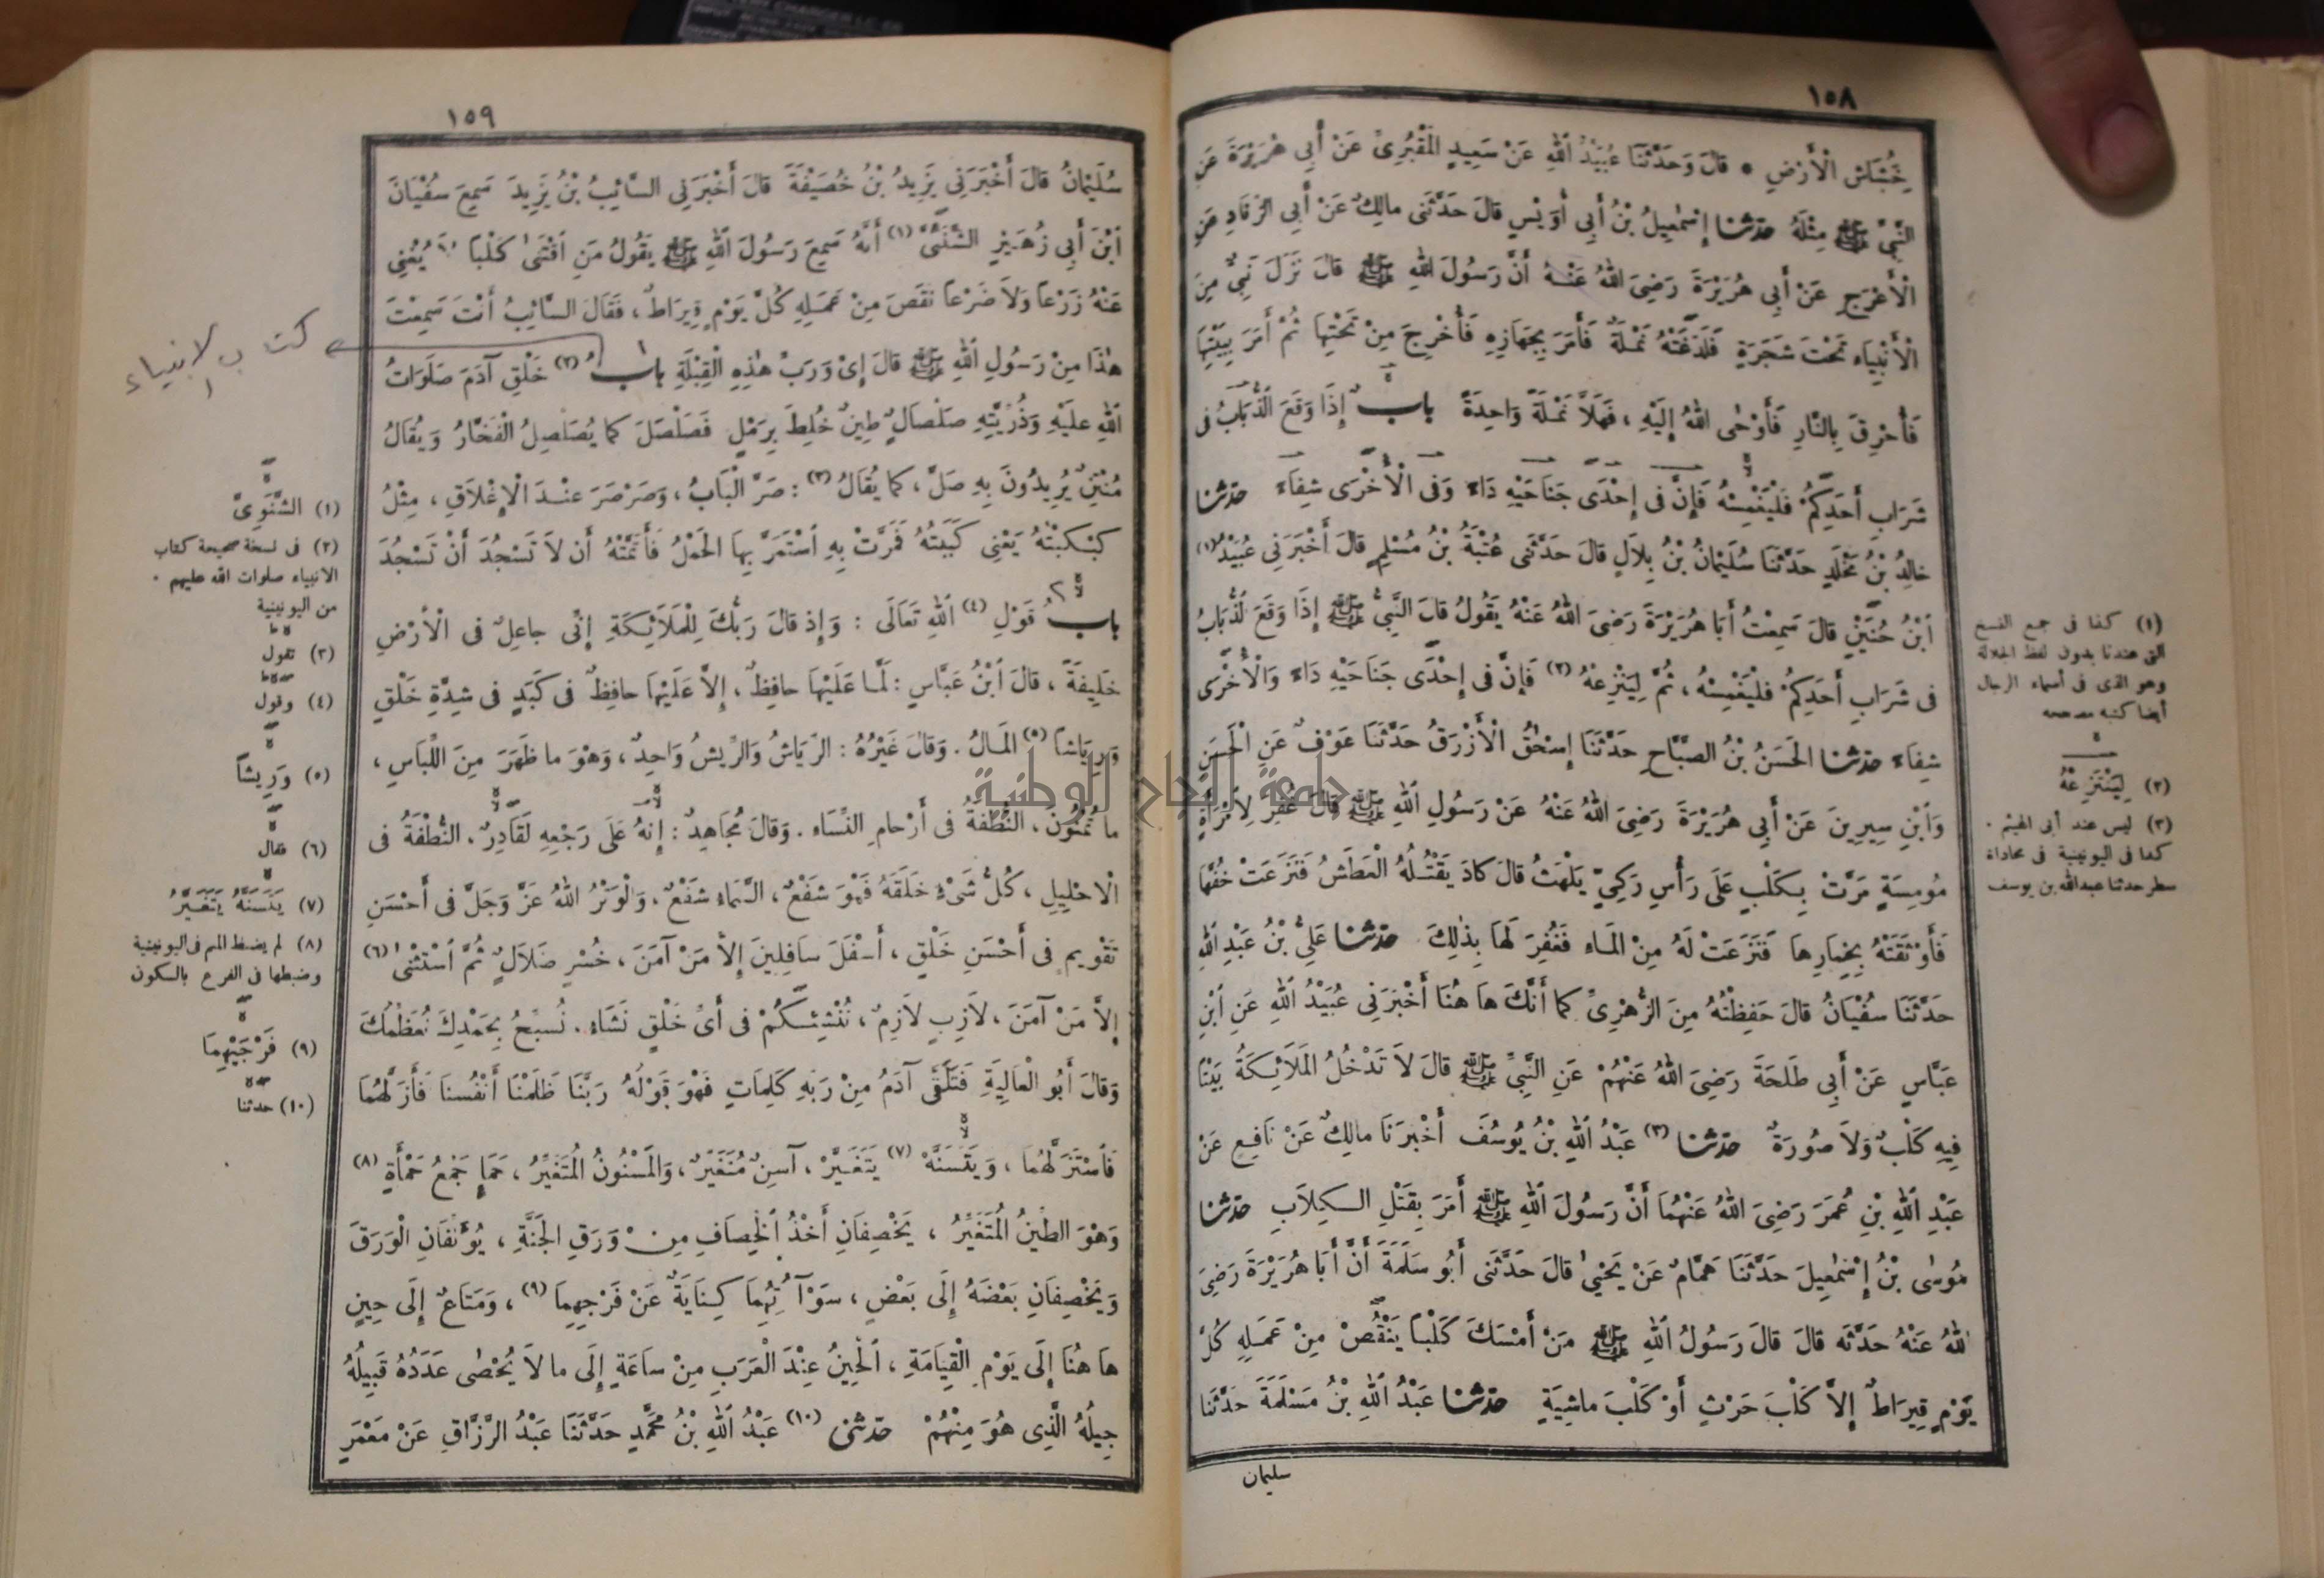 ١٥٨
خِشَاشِ الْأَرْضِ * قالَ وَحَدَّثَنَا عُبَيْدُ اللهِ عَنْ سَعِيدٍ الْمَقْبُرِيِّ عَنْ أَبِي هُرَيْرَةَ عَنِ
النَّبِيِّ ﷺ مِثْلَهُ حدثنا إِسْمٰعِيلُ بْنُ أَبِي أُوَيْسٍ قالَ حَدَّثَنِى مالِكٌ عَنْ أَبِي الزِّنَادِ عَنِ
الْأَعْرَجِ عَنْ أَبِي هُرَيْرَةَ رَضِيَ اللهُ عَنْهُ أَنَّ رَسُولَ اللهِ ﷺ قالَ نَزَلَ نَبِيٌّ مِنَ
الْأَنْبِيَاءِ تَحْتَ شَجَرَةٍ فَلَدَغَتْهُ نَمْلَةٌ فَأَمَرَ بِجَهَازِهِ فَأُخْرِجَ مِنْ تَحْتِهَا ثُمَّ أَمَرَ بِبَيْتِهَا
فَأُحْرِقَ بِالنَّارِ فَأَوْحٰى اللهُ إِلَيْهِ ، فَهَلَّا نَمْلَةً وَاحِدَةً باب إِذَا وَقَعَ الذُّبَابُ فى
شَرَابِ أَحَدِكُمْ فَلْيَغْمِسْهُ فَإِنَّ فى إِحْدَى جَنَاحَيْهِ دَاءً وَفى الْأُخْرَى شِفَاءً حدثنا
خالِدُ بْنُ مَخْلَدٍ حَدَّثَنَا سُلَيْمانُ بْنُ بِلاَلٍ قالَ حَدَّثَنِى عُتْبَةُ بْنُ مُسْلِمٍ قالَ أَخْبَرَنِي عُبَيْدُ (١)
ابْنُ حُنَيْنٍ قالَ سَمِعْتُ أَبَا هُرَيْرَةَ رَضِيَ اللهُ عَنْهُ يَقُولُ قالَ النَّبِيُّ ﷺ إِذَا وَقَعَ الذُّبَابُ
فى شَرَابِ أَحَدِكُمْ فَلْيَغْمِسْهُ ، ثُمَّ لِيَنْزِعْهُ (٢) فَإِنَّ فى إِحْدَى جَنَاحَيْهِ دَاءً وَالْأُخْرَى
شِفَاءً حدثنا الحَسَنُ بْنُ الصَّبَّاحِ حَدَّثَنَا إِسْحٰقُ الْأَزْرَقُ حَدَّثَنَا عَوْفٌ عَنِ الْحَسَنِ
وَابْنِ سِيرِينَ عَنْ أَبِي هُرَيْرَةَ رَضِيَ اللهُ عَنْهُ عَنْ رَسُولِ اللهِ ﷺ قالَ غُفِرَ لِامْرَأَةٍ
مُومِسَةٍ مَرَّتْ بِكَلْبٍ عَلَى رَأْسِ رَكِيٍّ يَلْهَثُ قالَ كادَ يَقْتُلُهُ الْعَطَشُ فَنَزَعَتْ خُفَّهَا
فَأَوْثَقَتْهُ بِخِمَارِهَا فَنَزَعَتْ لَهُ مِنَ الْمَاءِ فَغُفِرَ لَهَا بِذٰلِكَ حدثنا عَلِيُّ بْنُ عَبْدِ اللهِ
حَدَّثَنَا سُفْيَانُ قالَ حَفِظْتُهُ مِنَ الزُّهْرِيِّ كما أَنَّكَ هَا هُنَا أَخْبَرَنِي عُبَيْدُ اللهِ عَنِ ابْنِ
عَبَّاسٍ عَنْ أَبِي طَلحَةَ رَضِيَ اللهُ عَنْهُمْ عَنِ النَّبِيِّ ﷺ قالَ لاَ تَدْخُلُ الْمَلاَئِكَةُ بَيْتًا
فِيهِ كَلْبٌ وَلاَ صُورَةٌ حدثنا (٣) عَبْدُ اللهِ بْنُ يُوسُفَ أَخْبَرَنَا مالِكٌ عَنْ نَافِعٍ عَنْ
عَبْدِ اللهِ بْنِ عُمَرَ رَضِيَ اللهُ عَنْهُمَا أَنَّ رَسُولَ اللهِ ﷺ أَمَرَ بِقَتْلِ الْكِلاَبِ حدثنا
مُوسٰى بْنُ إِسْمٰعِيلَ حَدَّثَنَا هَمَّامٌ عَنْ يَحْيٰى قالَ حَدَّثَنِى أَبُو سَلَمَةَ أَنَّ أَبَا هُرَيْرَةَ رَضِيَ
اللهُ عَنْهُ حَدَّثَه قالَ قالَ رَسُولُ اللهِ ﷺ مَنْ أَمْسَكَ كَلْبًا يَنْقُصْ مِنْ عَمَلِهِ كُلَّ
يَوْمٍ قِيرَاطٌ إِلاَّ كَلْبَ حَرْثٍ أَوْ كَلْبَ ماشِيَةٍ حدثنا عَبْدُ اللهِ بْنُ مَسْلَمَةَ حَدَّثَنَا
سليمان
(١) كذا فى جمع النسخ
التى عندنا بدون لفظ الجلالة
وهو الذى فى أسماء الرجال
أيضا كتبه مصححه
(٢) لِيَنْتَزِعْهُ
(٣) ليس عند أبى الهيثم .
كذا فى اليونينية فى محاذاة
سطر حدثنا عبدالله بن يوسف
١٥٩
سُلَيْمانُ قالَ أَخْبَرَنِي يَزِيدُ بْنُ خُصَيْفَةَ قالَ أَخْبَرَنِي السَّائِبُ بْنُ يَزِيدَ سَمِعَ سُفْيَانَ
ابْنَ أَبِي زُهَيْرٍ الشَّنَئِيَّ (١) أَنَّهُ سَمِعَ رَسُولَ اللهِ ﷺ يَقُولُ مَنِ اقْتَنٰى كَلْبًا لاَ يُغْنِي
عَنْهُ زَرْعًا وَلاَ ضَرْعًا نَقَصَ مِنْ عَمَلِهِ كُلَّ يَوْمٍ قِيرَاطٌ ، فَقَالَ السَّائِبُ أَنْتَ سَمِعْتَ
هٰذَا مِنْ رَسُولِ اللهِ ﷺ قالَ إِيْ وَرَبِّ هٰذِهِ الْقِبْلَةِ باب (٢) خَلْقِ آدَمَ صَلَوَاتُ
كتاب الانبياء
اللهِ عَلَيْهِ وَذُرِّيَّتِهِ صَلْصَالٍ طِينٌ خُلِطَ بِرَمْلٍ فَصَلْصَلَ كما يُصَلْصِلُ الْفَخَّارُ وَيُقَالُ
مُنْتِنٌ يُرِيدُونَ بِهِ صَلَّ ، كما يُقَالُ (٣) : صَرَّ الْبَابُ ، وَصَرْصَرَ عِنْدَ الْإِغْلاَقِ ، مِثْلُ
كَبْكَبْتُهُ يَعْنِي كَبَبْتُهُ فَمَرَّتْ بِهِ اسْتَمَرَّ بِهَا الحَمْلُ فَأَتَمَّتْهُ أَنْ لاَ تَسْجُدَ أَنْ تَسْجُدَ
باب قَوْلِ (٤) اللهِ تَعَالَى : وَإِذْ قالَ رَبُّكَ لِلْمَلاَئِكَةِ إِنِّى جاعِلٌ فى الْأَرْضِ
خَلِيفَةً ، قالَ ابْنُ عَبَّاسٍ : لَمَّا عَلَيْهَا حافِظٌ ، إِلاَّ عَلَيْهَا حافِظٌ فى كَبَدٍ فى شِدَّةِ خَلْقٍ
وَرِيَاشًا (٥) الْمَالُ . وَقالَ غَيْرُهُ : الرِّيَاشُ وَالرِّيشُ وَاحِدٌ ، وَهْوَ ما ظَهَرَ مِنَ اللِّبَاسِ ،
ما تُمْنُونَ ، النُّطْفَةُ فى أَرْحامِ النِّسَاءِ . وَقالَ مُجَاهِدٌ : إِنهُ عَلَى رَجْعِهِ لَقَادِرٌ ، النُّطْفَةُ فى
الْاحْلِيلِ ، كُلُّ شَىْءٍ خَلَقَهُ فَهْوَ شَفْعٌ ، السَّمَاءُ شَفْعٌ ، وَالْوَتْرُ اللهُ عَزَّ وَجَلَّ فى أَحْسَنِ
تَقْوِيمٍ فى أَحْسَنِ خَلْقٍ ، أَسْفَلَ سَافِلِينَ إِلاَّ مَنْ آمَنَ ، خُسْرٍ ضَلاَلٍ ثُمَّ اسْتَثْنٰى (٦)
إِلاَّ مَنْ آمَنَ ، لاَزِبٍ لاَزِمٌ ، نُنْشِئَكُمْ فى أَيِّ خَلْقٍ نَشَاءُ . نُسَبِّحُ بِحَمْدِكَ نُعَظِّمُكَ
وَقالَ أَبُو الْعَالِيَةِ فَتَلَقَّى آدَمُ مِنْ رَبِّهِ كَلِمَاتٍ فَهْوَ قَوْلُهُ رَبَّنَا ظَلَمْنَا أَنْفُسَنَا فَأَزَلَّهُمَا
فَاسْتَزَلَّهُمَا ، وَيَتَسَنَّهْ (٧) يَتَغَيَّرْ ، آسِنٌ مُتَغَيِّرٌ ، وَالمَسْنُونُ الْمُتَغَيِّرُ ، حَمَإٍ جَمْعُ حَمْأَةٍ (٨)
وَهْوَ الطِّينُ الْمُتَغَيِّرُ ، يَخْصِفَانِ أَخْذُ الْخِصَافِ مِنْ وَرَقِ الجَنَّةِ ، يُؤَلِّفَانِ الْوَرَقَ
وَيَخْصِفَانِ بَعْضَهُ إِلَى بَعْضٍ ، سَوْآتُهُمَا كِنَايَةٌ عَنْ فَرْجِهِمَا (٩) ، وَمَتَاعٌ إِلَى حِينٍ
هَا هُنَا إِلَى يَوْمِ الْقِيَامَةِ ، الْحِينُ عِنْدَ الْعَرَبِ مِنْ سَاعَةٍ إِلَى ما لاَ يُحْصٰى عَدَدُهُ قَبِيلُهُ
جِيلُهُ الَّذِى هُوَ مِنْهُمْ حدثنى (١٠) عَبْدُ اللهِ بْنُ مُحَمَّدٍ حَدَّثَنَا عَبْدُ الرَّزَّاقِ عَنْ مَعْمَرٍ
(١) الشَّنَوِىَّ
(٢) فى نسخة صحيحة كتاب
الانبياء صلوات الله عليهم .
من اليونينية
(٣) تقول
(٤) وقول
(٥) وَرِيشًا
(٦) فقال
(٧) يَتَسَنَّهْ يَتَغَيَّرْ
(٨) لم يضبط الميم فى اليونينية
وضبطها فى الفرع بالسكون
(٩) فَرْجَيْهِمَا
(١٠) حدثنا
جامعة النجاح الوطنية